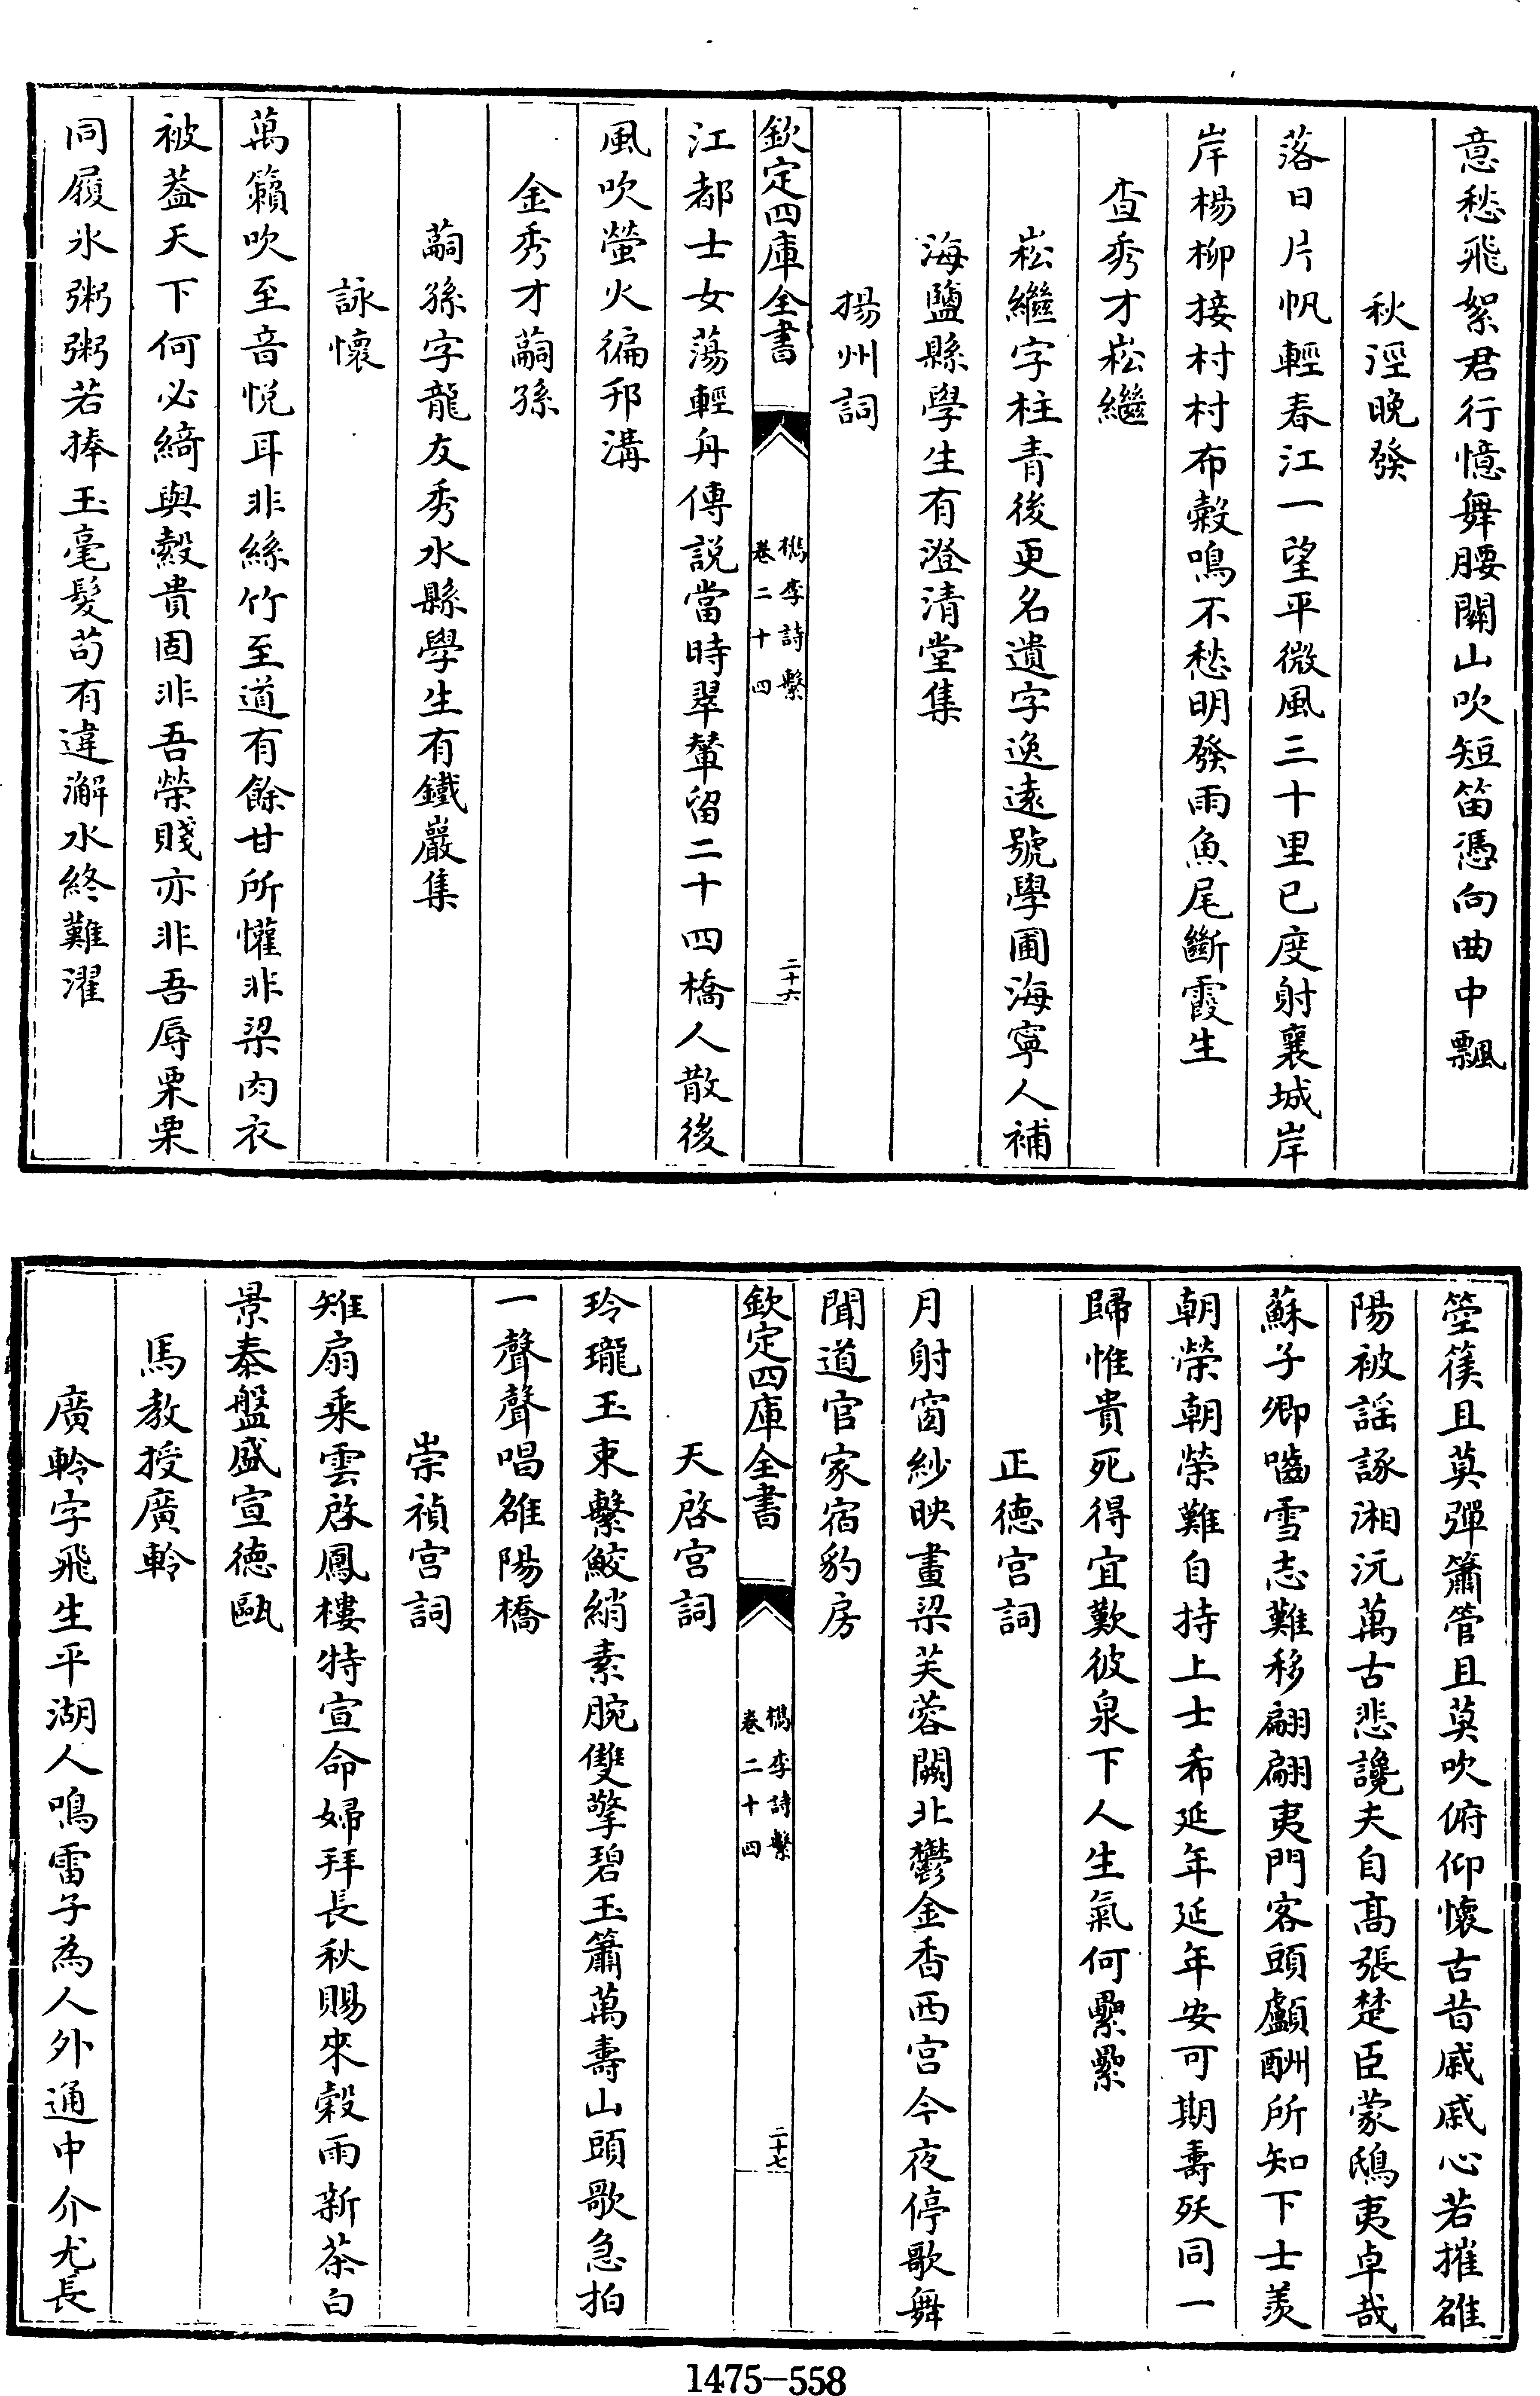 意愁飛絮君行憶舞腰關山吹短笛憑向曲中飄
秋涇晚發
落日片帆輕春江一望平微風三十里已度射襄城岸
岸楊柳接村村布穀鳴不愁明發雨魚尾斷霞生
查秀才崧繼
崧繼字柱青後更名遺字逸遠號學圃海寧人補
海鹽縣學生有澄清堂集
揚州詞
欽定四庫全書
檇李詩繫
卷二十四
二十六
江都士女蕩輕舟傳説當時翠輦留二十四橋人散後
風吹螢火徧邗溝
金秀才嗣孫
嗣孫字龍友秀水縣學生有鐵巖集
詠懷
萬籟吹至音悦耳非絲竹至道有餘甘所懽非梁肉衣
被葢天下何必綺與縠貴固非吾榮賤亦非吾辱栗栗
同履氷粥粥若捧玉毫髪苟有違澥水終難濯
箜篌且莫彈簫管且莫吹俯仰懷古昔戚戚心若摧雒
陽被謡諑湘沅萬古悲讒夫自髙張楚臣蒙鴟夷卓哉
蘇子卿嚙雪志難移翩翩夷門客頭顱酬所知下士羨
朝榮朝榮難自持上士希延年延年安可期壽殀同一
歸惟貴死得宜歎彼泉下人生氣何纍纍
正徳宫詞
月射窗紗映畫梁芙蓉闕北鬱金香西宫今夜停歌舞
聞道官家宿豹房
欽定四庫全書
檇李詩繫
卷二十四
二十七
天啓宫詞
玲瓏玉束繫鮫綃素腕雙擎碧玉簫萬壽山頭歌急拍
一聲聲唱雒陽橋
崇禎宫詞
雉扇乘雲啓鳳樓特宣命婦拜長秋賜來榖雨新茶白
景泰盤盛宣徳甌
馬教授廣軨
廣軨字飛生平湖人鳴雷子為人外通中介尤長
1475-558